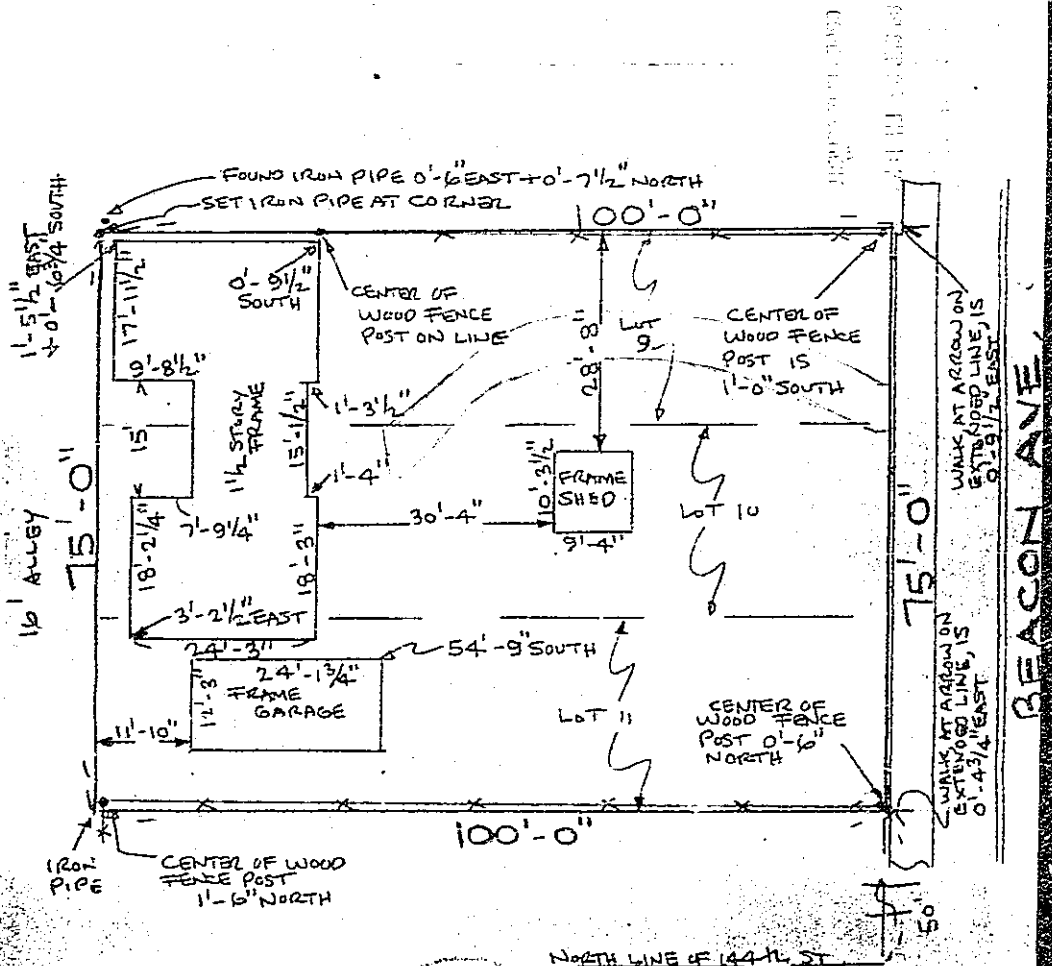 FOUND IRON PIPE 0'-6" EAST + 0'-7 1/2" NORTH
SET IRON PIPE AT CORNER
100'-0"
1'-5 1/2" EAST
+ 0'-6 3/4" SOUTH
17'-11 1/2"
0'-9 1/2"
SOUTH
CENTER OF
WOOD FENCE
POST ON LINE
28'-8"
LOT
9
CENTER OF
WOOD FENCE
POST IS
1'-0" SOUTH
WALK AT ARROW ON
EXTENDED LINE, IS
0'-9 1/2" EAST
9'-8 1/2"
15'
1 1/2 STORY
FRAME
15'-1/2"
1'-3 1/2"
1'-4"
16' ALLEY
75'-0"
7'-9 1/4"
18'-2 1/4"
18'-3"
30'-4"
10'-3 1/2"
FRAME
SHED
9'-4"
LOT 10
75'-0"
BEACON AVE.
3'-2 1/2" EAST
24'-3"
54'-9" SOUTH
24'-1 3/4"
12'-3"
FRAME
GARAGE
11'-10"
LOT 11
CENTER OF
WOOD FENCE
POST 0'-6"
NORTH
WALK, AT ARROW ON
EXTENDED LINE, IS
0'-4 3/4" EAST
100'-0"
IRON
PIPE
CENTER OF WOOD
FENCE POST
1'-6" NORTH
50'
NORTH LINE OF 144th ST